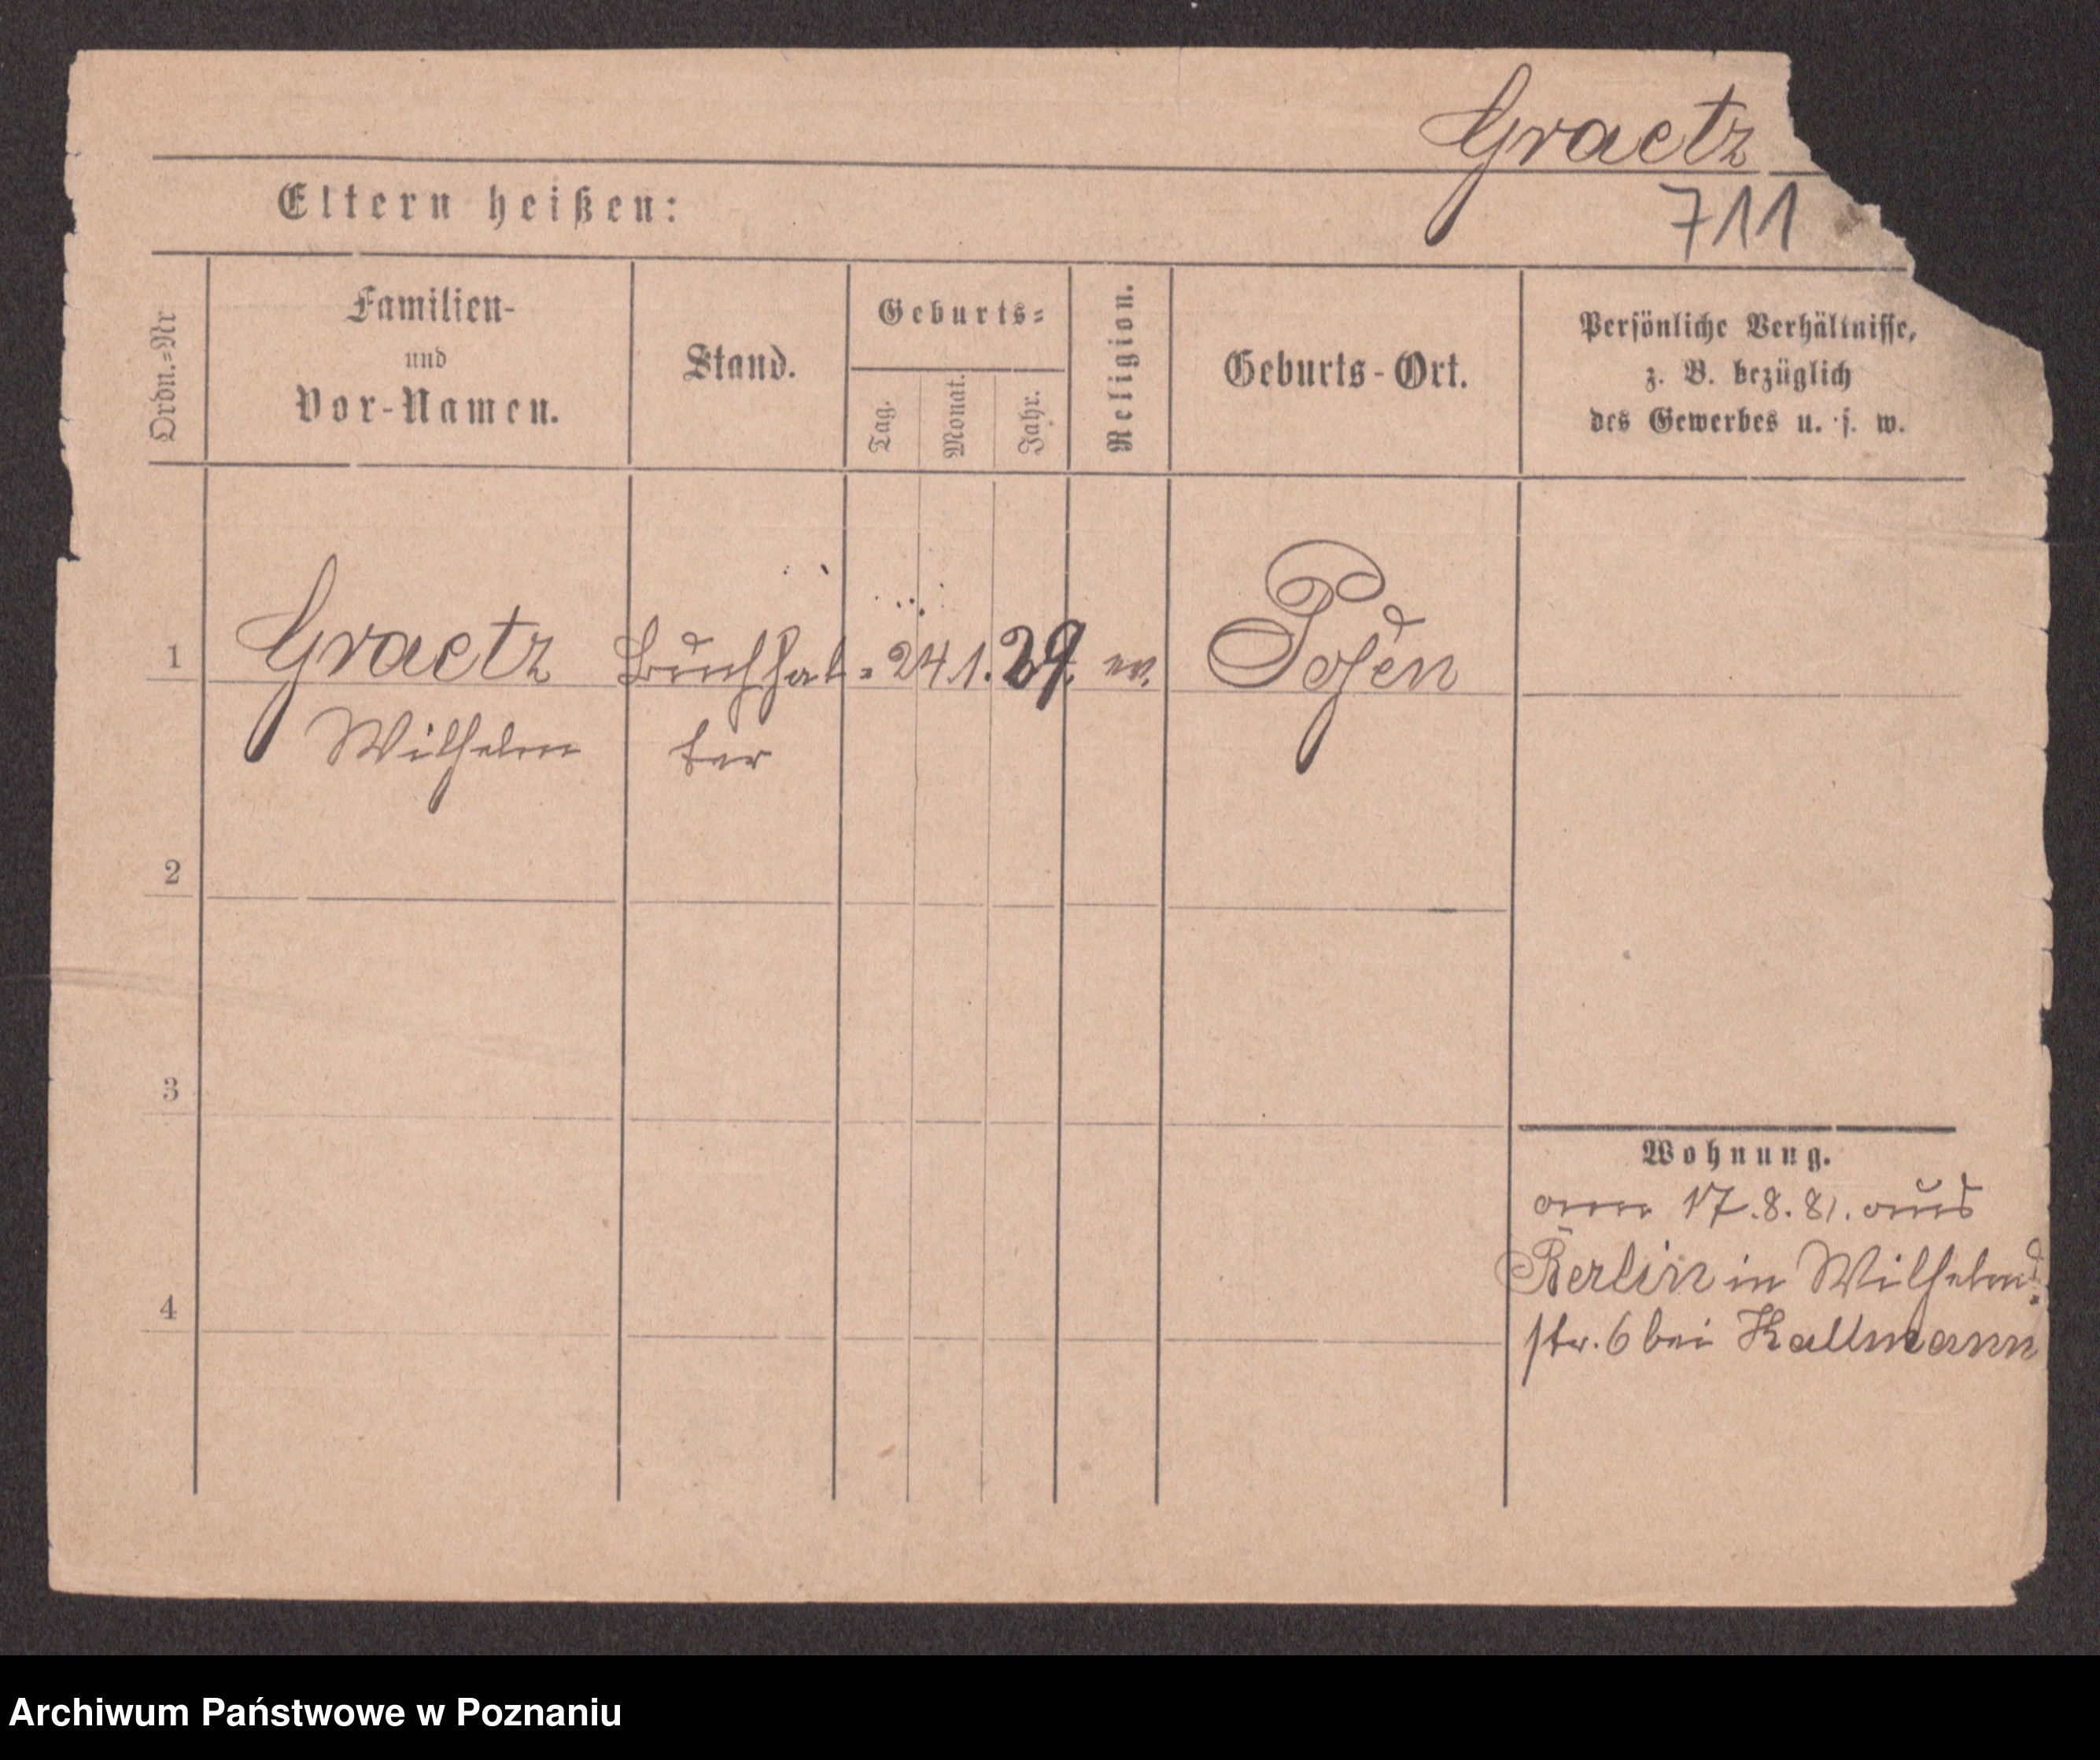 Graetz
711
Eltern heißen:
Ordn.=Nr
Familien-
und
Vor-Namen.
Stand.
Geburts=
Tag.
Monat.
Jahr.
Religion.
Geburts-Ort.
Persönliche Verhältnisse,
z. B. bezüglich
des Gewerbes u. s. w.
1
Graetz Buchhal= 24 1. 29. ev. Posen
Wilhelm ter
2
3
Wohnung.
am 17.8.81. aus
Berlin in Wilhelms=
4
str. 6 bei Kallmann
Archiwum Państwowe w Poznaniu